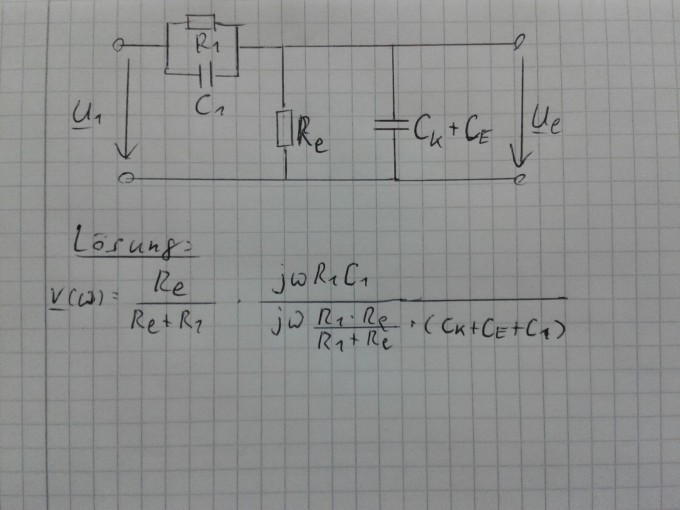 R1
C1
U1
Re
CK + CE
Ue
Lösung:
V(ω) = Re / (Re + R1) · jωR1C1 / (jω (R1 · Re) / (R1 + Re) · (CK + CE + C1))